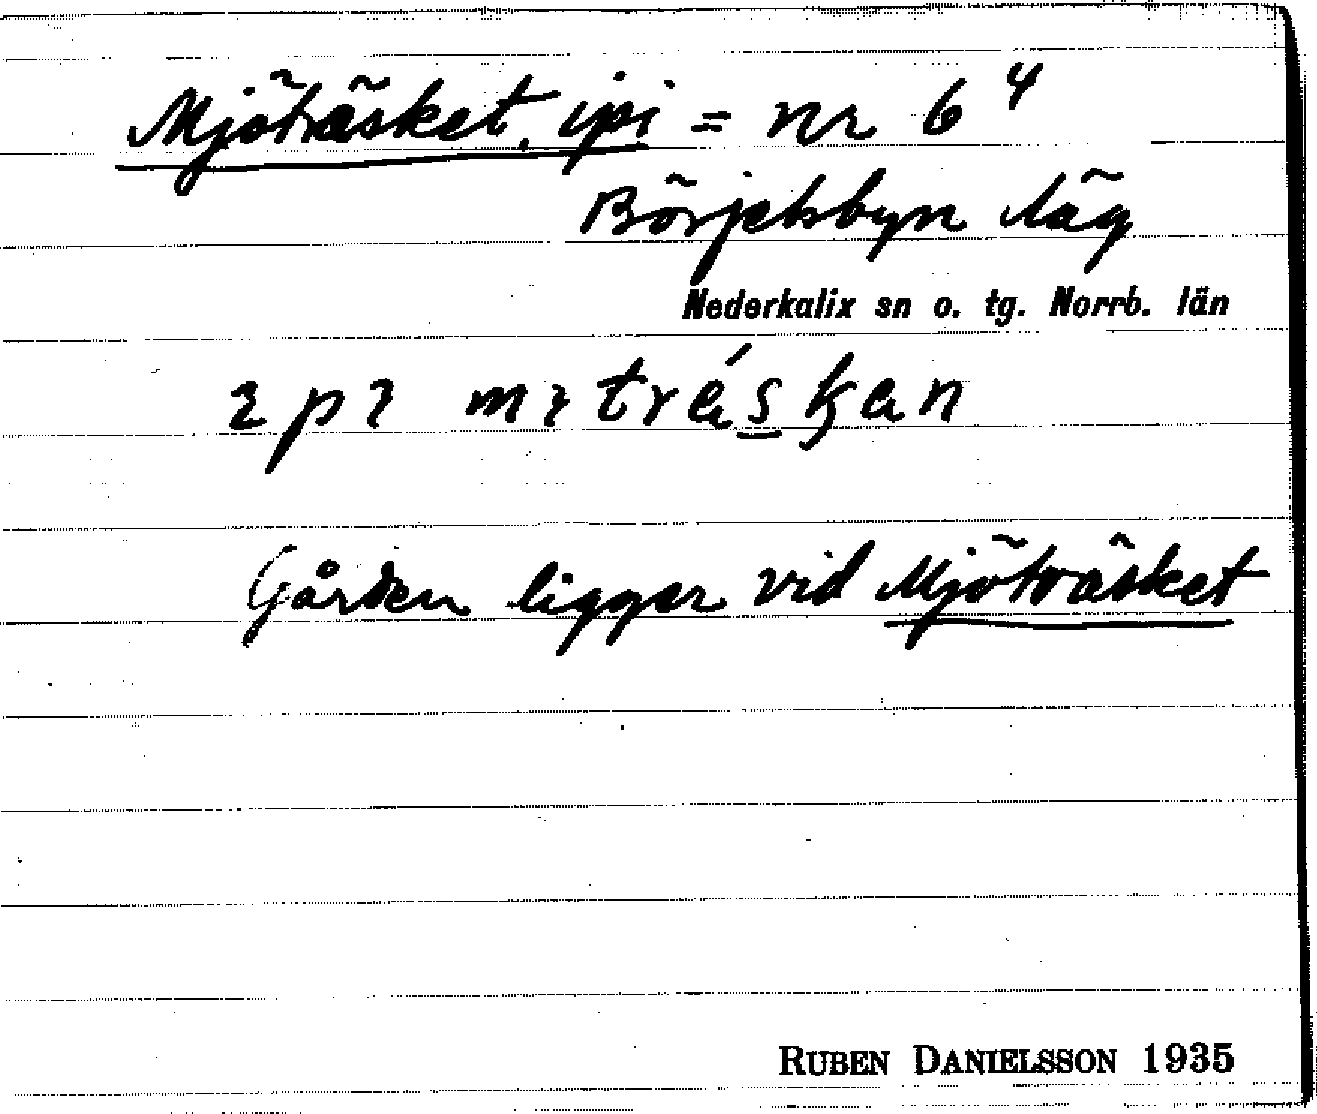 Mjöträsket, ipi = nr 6⁴
Börjelsbyn läg
Nederkalix sn o. tg. Norrb. län
Gården ligger vid Mjöträsket
RUBEN DANIELSSON 1935